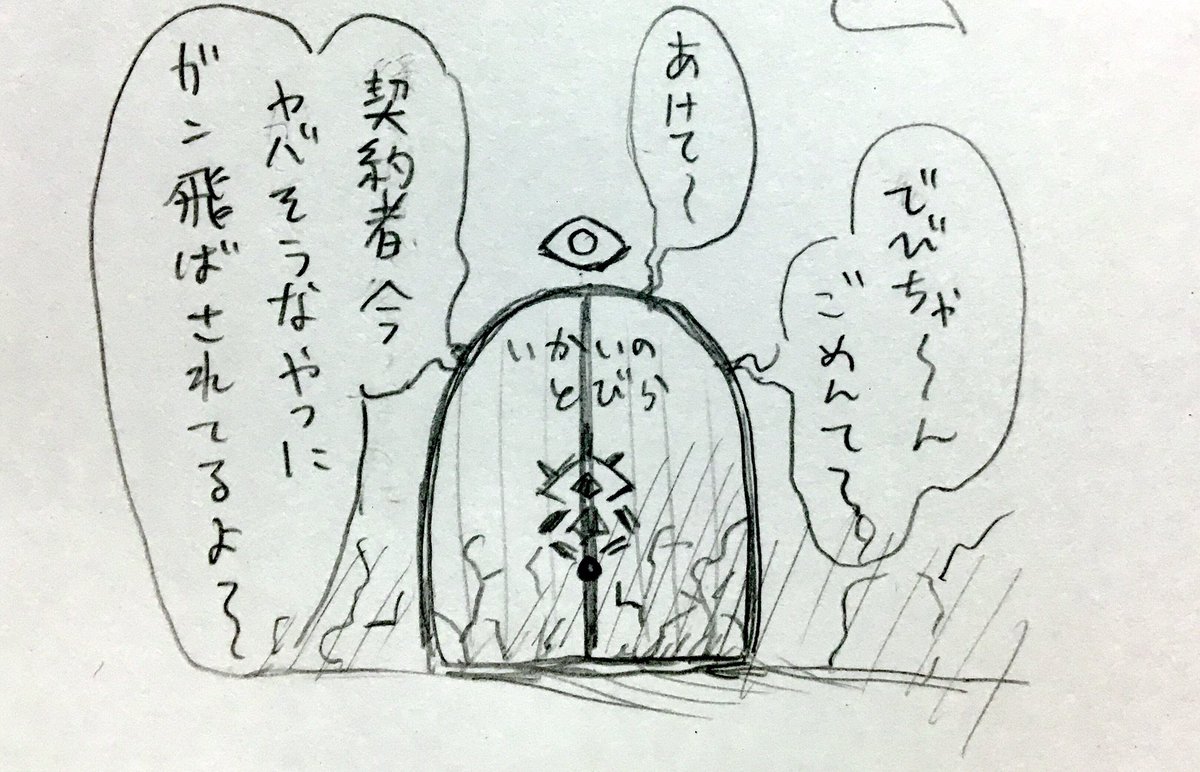 でびちゃ〜〜ん
ごめんてて
あけて〜
契約者今
ヤバそうなやつに
ガン飛ばされてるよて〜
いかいの
とびら